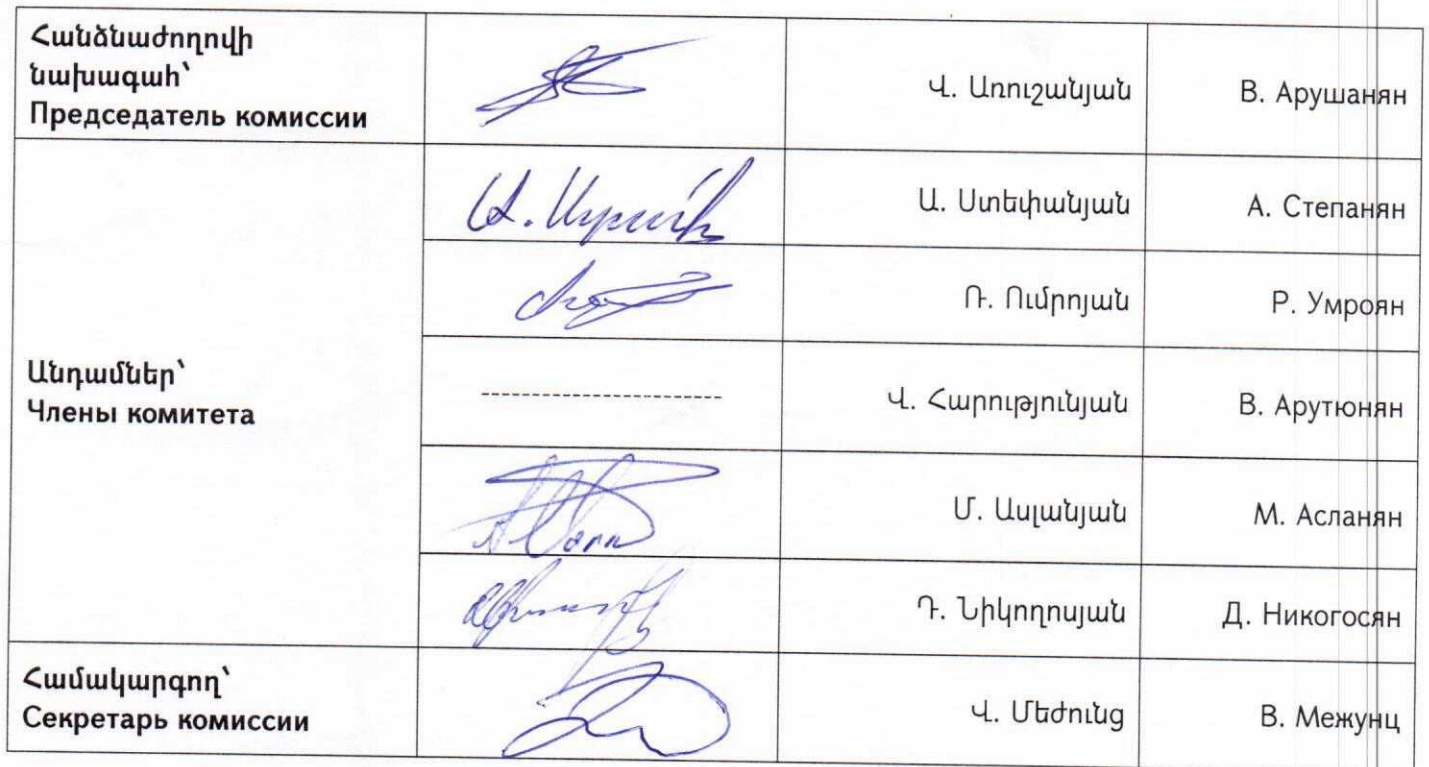 Հանձնաժողովի
նախագահ՝
Председатель комиссии
Վ. Առուշանյան
В. Арушанян
Անդամներ՝
Члены комитета
Ա. Ստեփանյան
А. Степанян
Ռ. Ումրոյան
Р. Умроян
Վ. Հարությունյան
В. Арутюнян
Մ. Ասլանյան
М. Асланян
Դ. Նիկողոսյան
Д. Никогосян
Համակարգող՝
Секретарь комиссии
Վ. Մեժունց
В. Межунц